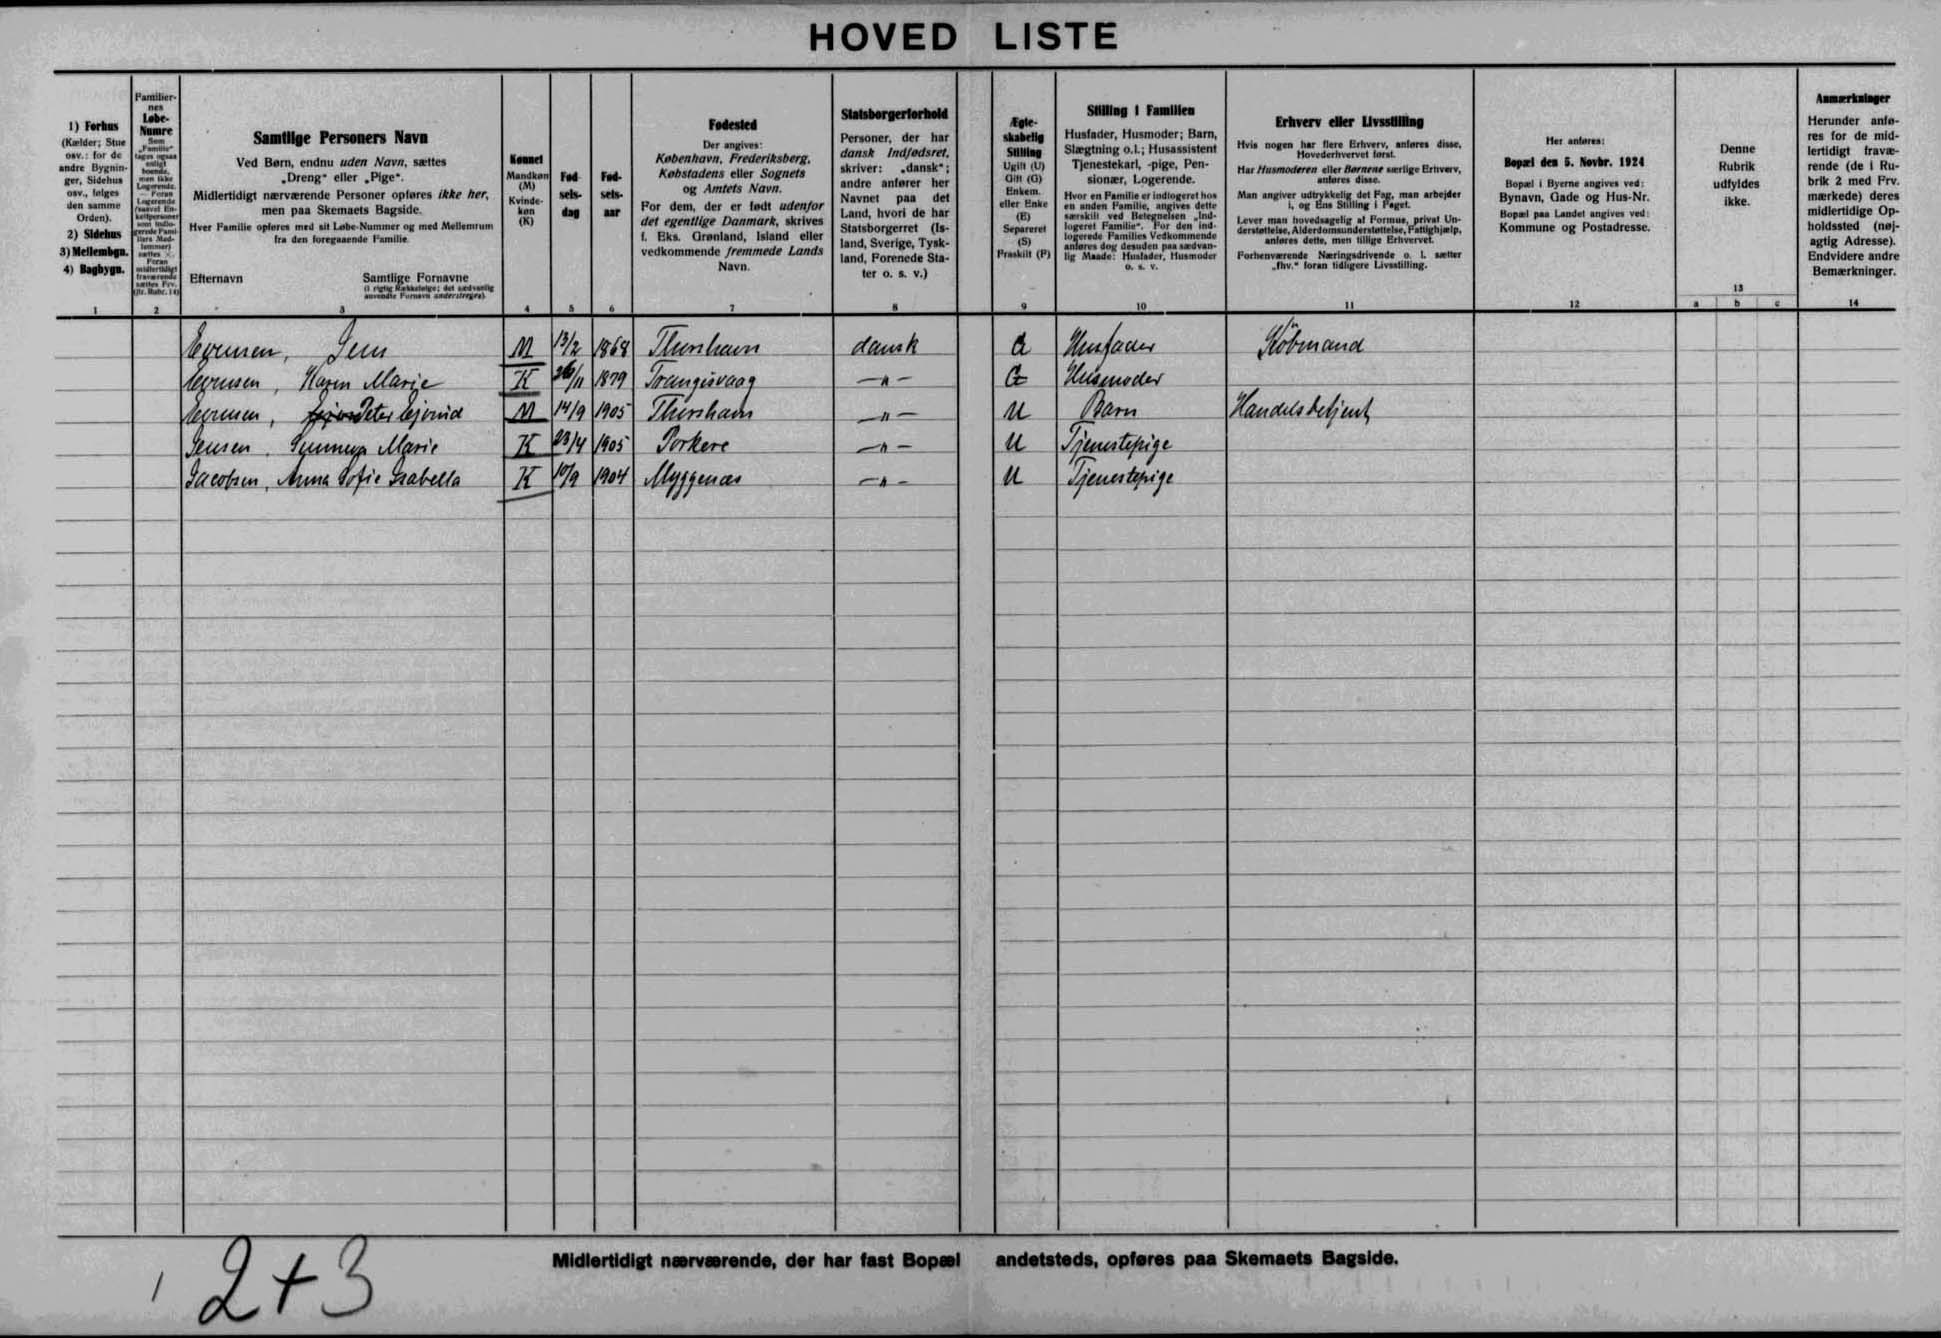 HOVED LISTE
1) Forhus
(Kælder; Stue
osv.: for de
andre Bygnin-
ger, Sidehus
osv., følges
den samme
Orden).
2) Sidehus
3) Mellembgn.
4) Bagbygn.
1
Familier-
nes
Løbe-
Numre
Som
„Familie“
tages ogsaa
enligt
boende,
men ikke
Logerende.
— Foran
Logerende
(saavel En-
keltpersoner
som indlo-
gerede Fami-
liers Med-
lemmer)
sættes ×.
Foran
midlertidigt
fraværende
sættes Frv.
(jfr. Rubr. 14)
2
Samtlige Personers Navn
Ved Børn, endnu uden Navn, sættes
„Dreng“ eller „Pige“.
Midlertidigt nærværende Personer opføres ikke her,
men paa Skemaets Bagside.
Hver Familie opføres med sit Løbe-Nummer og med Mellemrum
fra den foregaaende Familie.
Efternavn Samtlige Fornavne
(i rigtig Rækkefølge; det sædvanlig
anvendte Fornavn understreges).
3
Kønnet
Mandkøn
(M)
Kvinde-
køn
(K)
4
Fød-
sels-
dag
5
Fød-
sels-
aar
6
Fødested
Der angives:
København, Frederiksberg,
Købstadens eller Sognets
og Amtets Navn.
For dem, der er født udenfor
det egentlige Danmark, skrives
f. Eks. Grønland, Island eller
vedkommende fremmede Lands
Navn.
7
Statsborgerforhold
Personer, der har
dansk Indfødsret,
skriver: „dansk“;
andre anfører her
Navnet paa det
Land, hvori de har
Statsborgerret (Is-
land, Sverige, Tysk-
land, Forenede Sta-
ter o. s. v.)
8
Ægte-
skabelig
Stilling
Ugift (U)
Gift (G)
Enkem.
eller Enke
(E)
Separeret
(S)
Fraskilt (F)
9
Stilling i Familien
Husfader, Husmoder; Barn,
Slægtning o.l.; Husassistent
Tjenestekarl, -pige, Pen-
sionær, Logerende.
Hvor en Familie er indlogeret hos
en anden Familie, angives dette
særskilt ved Betegnelsen „Ind-
logeret Familie“. For den ind-
logerede Families Vedkommende
anføres dog desuden paa sædvan-
lig Maade: Husfader, Husmoder
o. s. v.
10
Erhverv eller Livsstilling
Hvis nogen har flere Erhverv, anføres disse,
Hovederhvervet først.
Har Husmoderen eller Børnene særlige Erhverv,
anføres disse.
Man angiver udtrykkelig det Fag, man arbejder
i, og Ens Stilling i Faget.
Lever man hovedsagelig af Formue, privat Un-
derstøttelse, Alderdomsunderstøttelse, Fattighjælp,
anføres dette, men tillige Erhvervet.
Forhenværende Næringsdrivende o. l. sætter
„fhv.“ foran tidligere Livsstilling.
11
Her anføres:
Bopæl den 5. Novbr. 1924
Bopæl i Byerne angives ved:
Bynavn, Gade og Hus-Nr.
Bopæl paa Landet angives ved:
Kommune og Postadresse.
12
Denne
Rubrik
udfyldes
ikke.
13
a b c
Anmærkninger
Herunder anfø-
res for de mid-
lertidigt fravæ-
rende (de i Ru-
brik 2 med Frv.
mærkede) deres
midlertidige Op-
holdssted (nøj-
agtig Adresse).
Endvidere andre
Bemærkninger.
14
Evensen, Jens M 13/2 1868 Thorshavn dansk G Husfader Købmand
Evensen, Karen Marie K 26/11 1879 Trangisvaag —„— G Husmoder
Evensen, Peter Ejvind M 14/9 1905 Thorshavn —„— U Barn Handelsbetjent
Jensen, Sunneva Marie K 23/4 1905 Porkere —„— U Tjenestepige
Jacobsen, Anna Sofie Isabella K 10/9 1904 Myggenæs —„— U Tjenestepige
Midlertidigt nærværende, der har fast Bopæl andetsteds, opføres paa Skemaets Bagside.
2+3